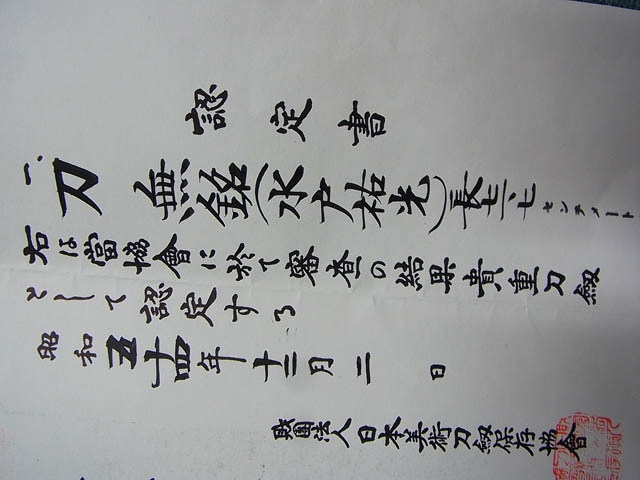 認定書
一、刀 無銘(水戸祐光)長七三、七センチメートル
右は當協會に於て審査の結果貴重刀劔
として認定する
昭和五十四年十二月二日
財團法人日本美術刀劔保存協會